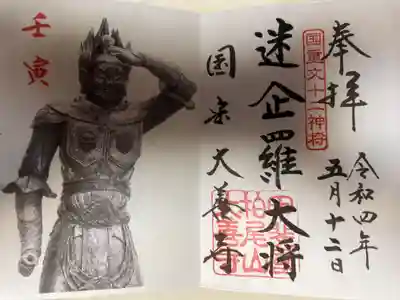 奉拝
令和四年
五月十二日
国重文十二神将
迷企羅大将
柏尾山
大善寺
国宝大善寺
壬寅